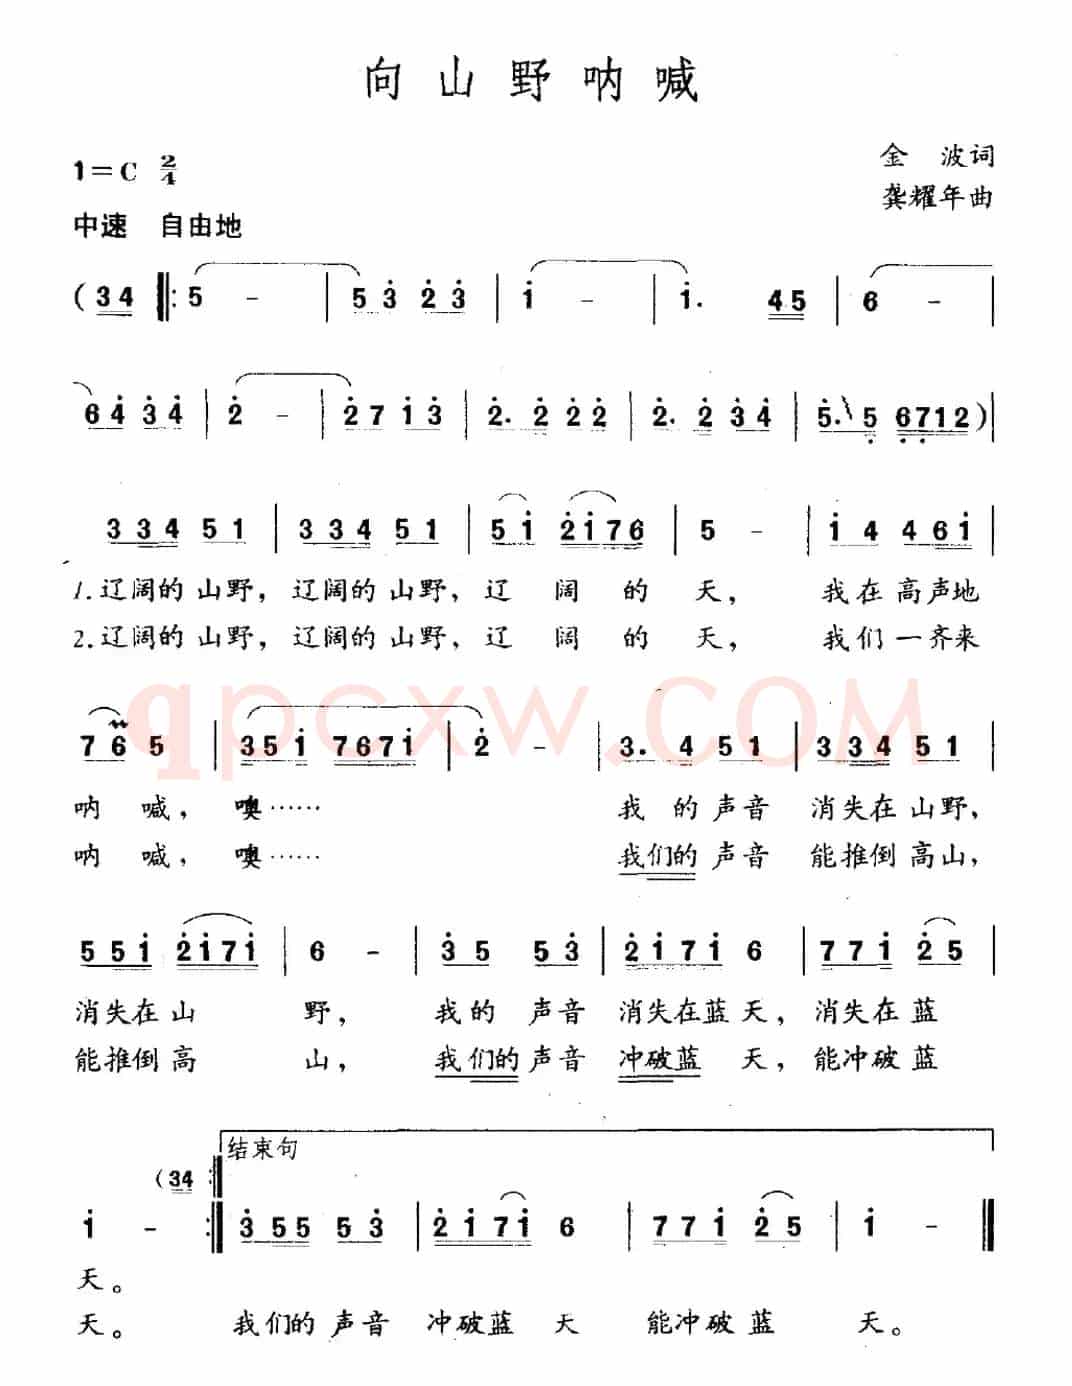 向山野呐喊
1=C 2/4
金 波词
中速 自由地
龚耀年曲
(34 ‖: 5 - | 5 3̇ 2̇ 3̇ | 1̇ - | 1̇. 45 | 6 - |
6 4̇ 3̇ 4̇ | 2̇ - | 2̇ 7 1̇ 3̇ | 2̇. 2̇ 2̇ 2̇ | 2̇. 2̇ 3̇ 4̇ | 5̇. 5̣ 6̣7̣12) |
334 51 | 334 51 | 51̇ 2̇1̇76 | 5 - | 1̇ 4 461̇ |
1.辽阔的山野，辽阔的山野，辽 阔 的 天， 我在高声地
2.辽阔的山野，辽阔的山野，辽 阔 的 天， 我们一齐来
qpcxw.COM
7 6 5 | 351̇ 7671̇ | 2̇ - | 3. 4 51 | 334 51 |
呐 喊，噢…… 我 的 声音 消失在山野，
呐 喊，噢…… 我们的声音 能推倒高山，
551̇ 2̇1̇71̇ | 6 - | 3̇5 53̇ | 2̇1̇71̇ 6 | 771̇ 2̇5 |
消失在山 野， 我的 声音 消失在蓝天，消失在蓝
能推倒高 山， 我们的声音 冲破蓝 天，能冲破蓝
结束句
(34 :‖
1̇ - :‖ 3̇55 53̇ | 2̇1̇71̇ 6 | 771̇ 2̇5 | 1̇ - ‖
天。
天。 我们的声音 冲破蓝 天 能冲破蓝 天。